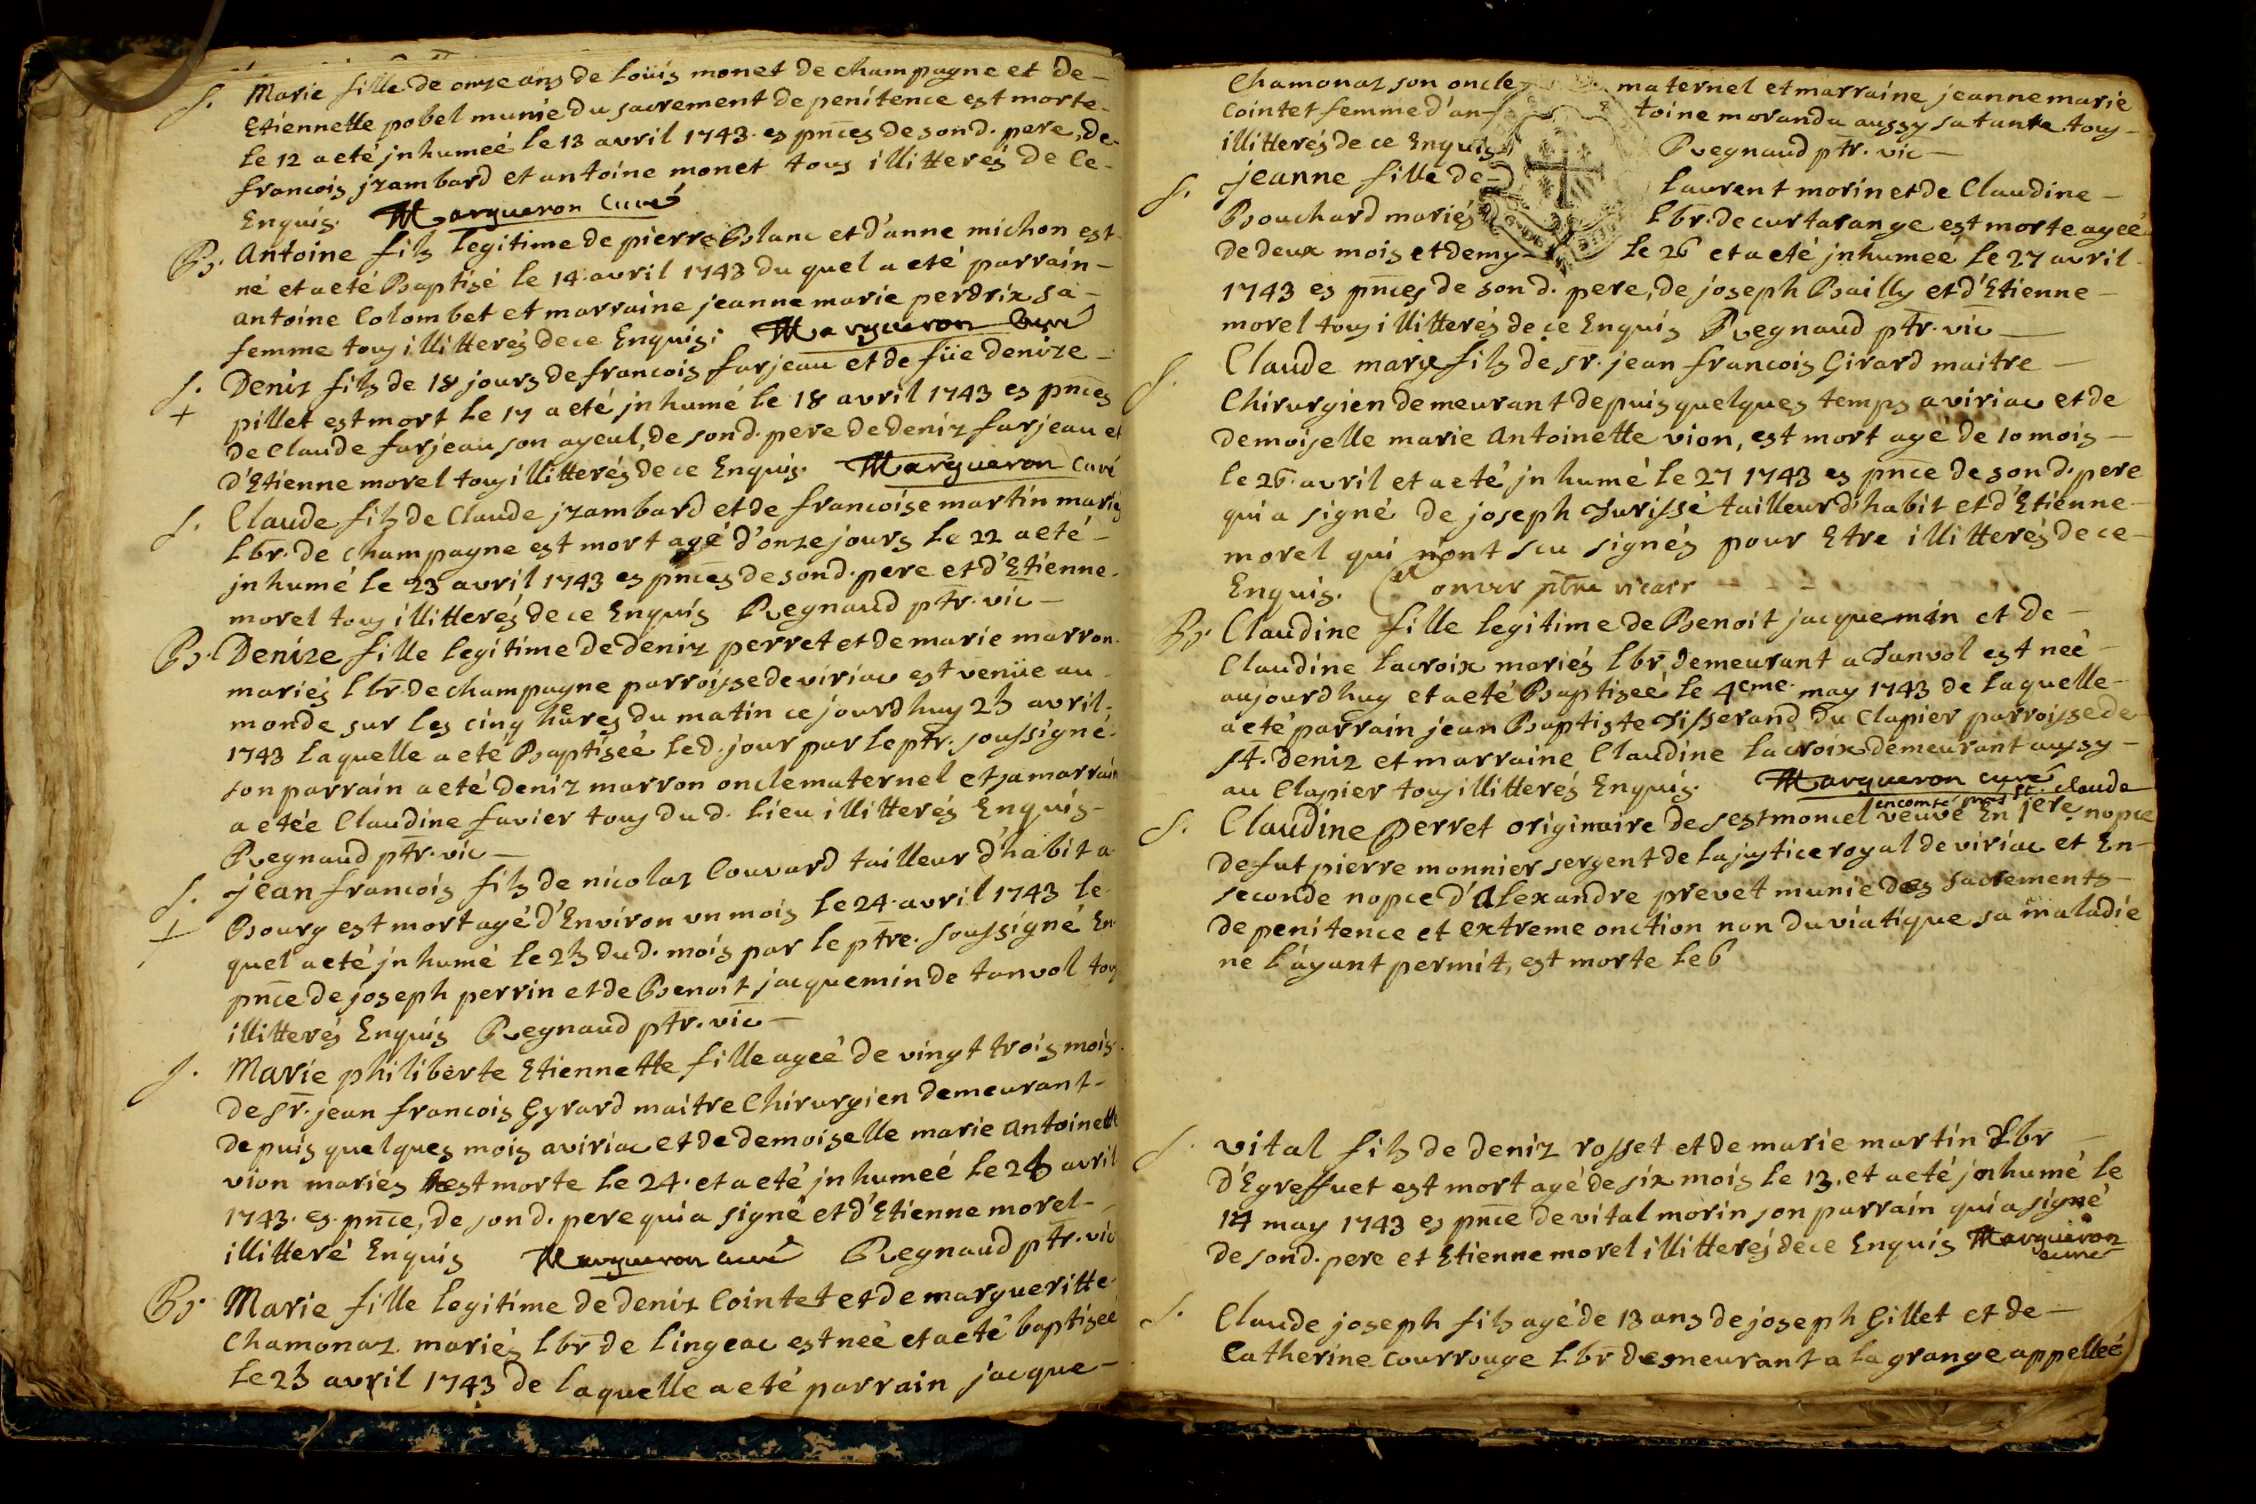 S. Marie fille de onze ans de Loüis monet de champagne et de –
Etiennette pobel munie du sacrement de penitence est morte –
le 12 a eté jnhumeé le 13 avril 1743. es pnces de son d. pere, de
francois jzambard et antoine monet tous illitterés de ce –
Enquis. Margueron Curé
Bs. Antoine fils legitime de pierre Blanc et d'anne michon est
né et a eté Baptisé le 14. avril 1743 du quel a eté parrain –
antoine Colombet et marraine jeanne marie perdrix sa –
femme tous illitterés de ce Enquis. Margueron Curé
S. Deniz fils de 18 jours de francois farjeau et de füe denize –
+ pillet est mort le 17 a eté jnhumé le 18 avril 1743 es pnces
de Claude farjeau son ayeul, de son d. pere de deniz farjeau et
d'Etienne morel tous illitterés de ce Enquis. Margueron Curé
S. Claude fils de Claude jzambard et de francoise martin mariés
Lbr. de Champagne est mort agé d'onze jours le 22 a eté –
jnhumé le 23 avril 1743 es pnces de son d. pere et d'Etienne.
morel tous illitterés de ce Enquis Regnaud ptr. vic –
Bs. Denize fille legitime de deniz perret et de marie marron.
mariés Lbr. de champagne parroisse de viriac est venüe au
monde sur les cinq heures du matin ce jourdhuy 25 avril.
1743 laquelle a eté Baptiseé led. jour par le ptr. soussigné.
son parrain a eté deniz marron oncle maternel et sa marraine
a etée Claudine favier tous du d. lieu illitterés Enquis –
Regnaud ptr. vic –
S. jean francois fils de nicolaz Couvard tailleur d'habit a
+ Bourg est mort agé d'Environ un mois le 24. avril 1743 le
quel a eté jnhumé le 25 du d. mois par le ptre. soussigné En
pnce de joseph perrin et de Benoit jacquemin de tanvol tous
illitterés Enquis Regnaud ptr. vic –
S. Marie philiberte Etiennette fille ageé de vingt trois mois.
de sr. jean francois Gyrard maitre Chirurgien demeurant –
depuis quelques mois a viriac et de demoiselle marie Antoinette
vion mariés est morte le 24. et a eté jnhumeé le 25 avril
1743. es. pnce, de son d. pere qui a signé et d'Etienne morel –
illitteré Enquis Margueron curé Regnaud ptr. vic
Bs. Marie fille legitime de deniz Cointet et de margueritte.
Chamonaz mariés Lbr de Lingeac est neé et a eté baptiseé
le 25 avril 1743 de laquelle a eté parrain jacque –
Chamonaz son oncle maternel et marraine jeanne marie
Cointet femme d'antoine morandu aussy sa tante tous –
illitterés de ce Enquis Regnaud ptr. vic –
S. jeanne fille de – laurent morin et de Claudine –
Bouchard mariés Lbr. de curtarange est morte ageé
de deux mois et demy – le 26 et a eté jnhumeé le 27 avril
1743 es pnces de son d. pere, de joseph Bailly et d'Etienne –
morel tous illitterés de ce Enquis Regnaud ptr. vic –
S. Claude marie fils de sr. jean francois Girard maitre –
Chirurgien demeurant depuis quelques temps a viriac et de
demoiselle marie Antoinette vion, est mort agé de 10 mois –
le 26. avril et a eté jnhumé le 27 1743 es pnce de son d. pere
qui a signé de joseph Jurissé tailleur d'habit et d'Etienne –
morel qui n'ont scu signés pour Etre illitterés de ce –
Enquis. ptre vicair
Bs. Claudine fille legitime de Benoit jacquemin et de –
Claudine lacroix mariés Lbr demeurant a Janvol est neé –
aujourdhuy et a eté Baptiseé le 4eme. may 1743 de laquelle –
a eté parrain jean Baptiste Tisserand du Clapier parroisse de
st. deniz et marraine Claudine lacroix demeurant aussy –
au Clapier tous illitterés Enquis. Margueron curé
encomté pres st. Claude
S. Claudine Perret originaire de sestmoncel veuve En 1ere. nopce
de fut pierre monnier sergent de la justice royal de viriac et En –
seconde nopce d'Alexandre prevet munie des sacrements –
de penitence et extreme onction non du viatique sa maladie
ne l'ayant permit, est morte le 6
S. vital fils de deniz rosset et de marie martin Lbr –
d'Egreffuet est mort agé de six mois le 13. et a eté jnhumé le
14 may 1743 es pnce de vital morin son parrain qui a signé
de son d. pere et Etienne morel illitterés de ce Enquis Margueron
curé
S. Claude joseph fils agé de 13 ans de joseph Gillet et de –
Catherine Courrouge Lbr demeurant a la grange appelleé